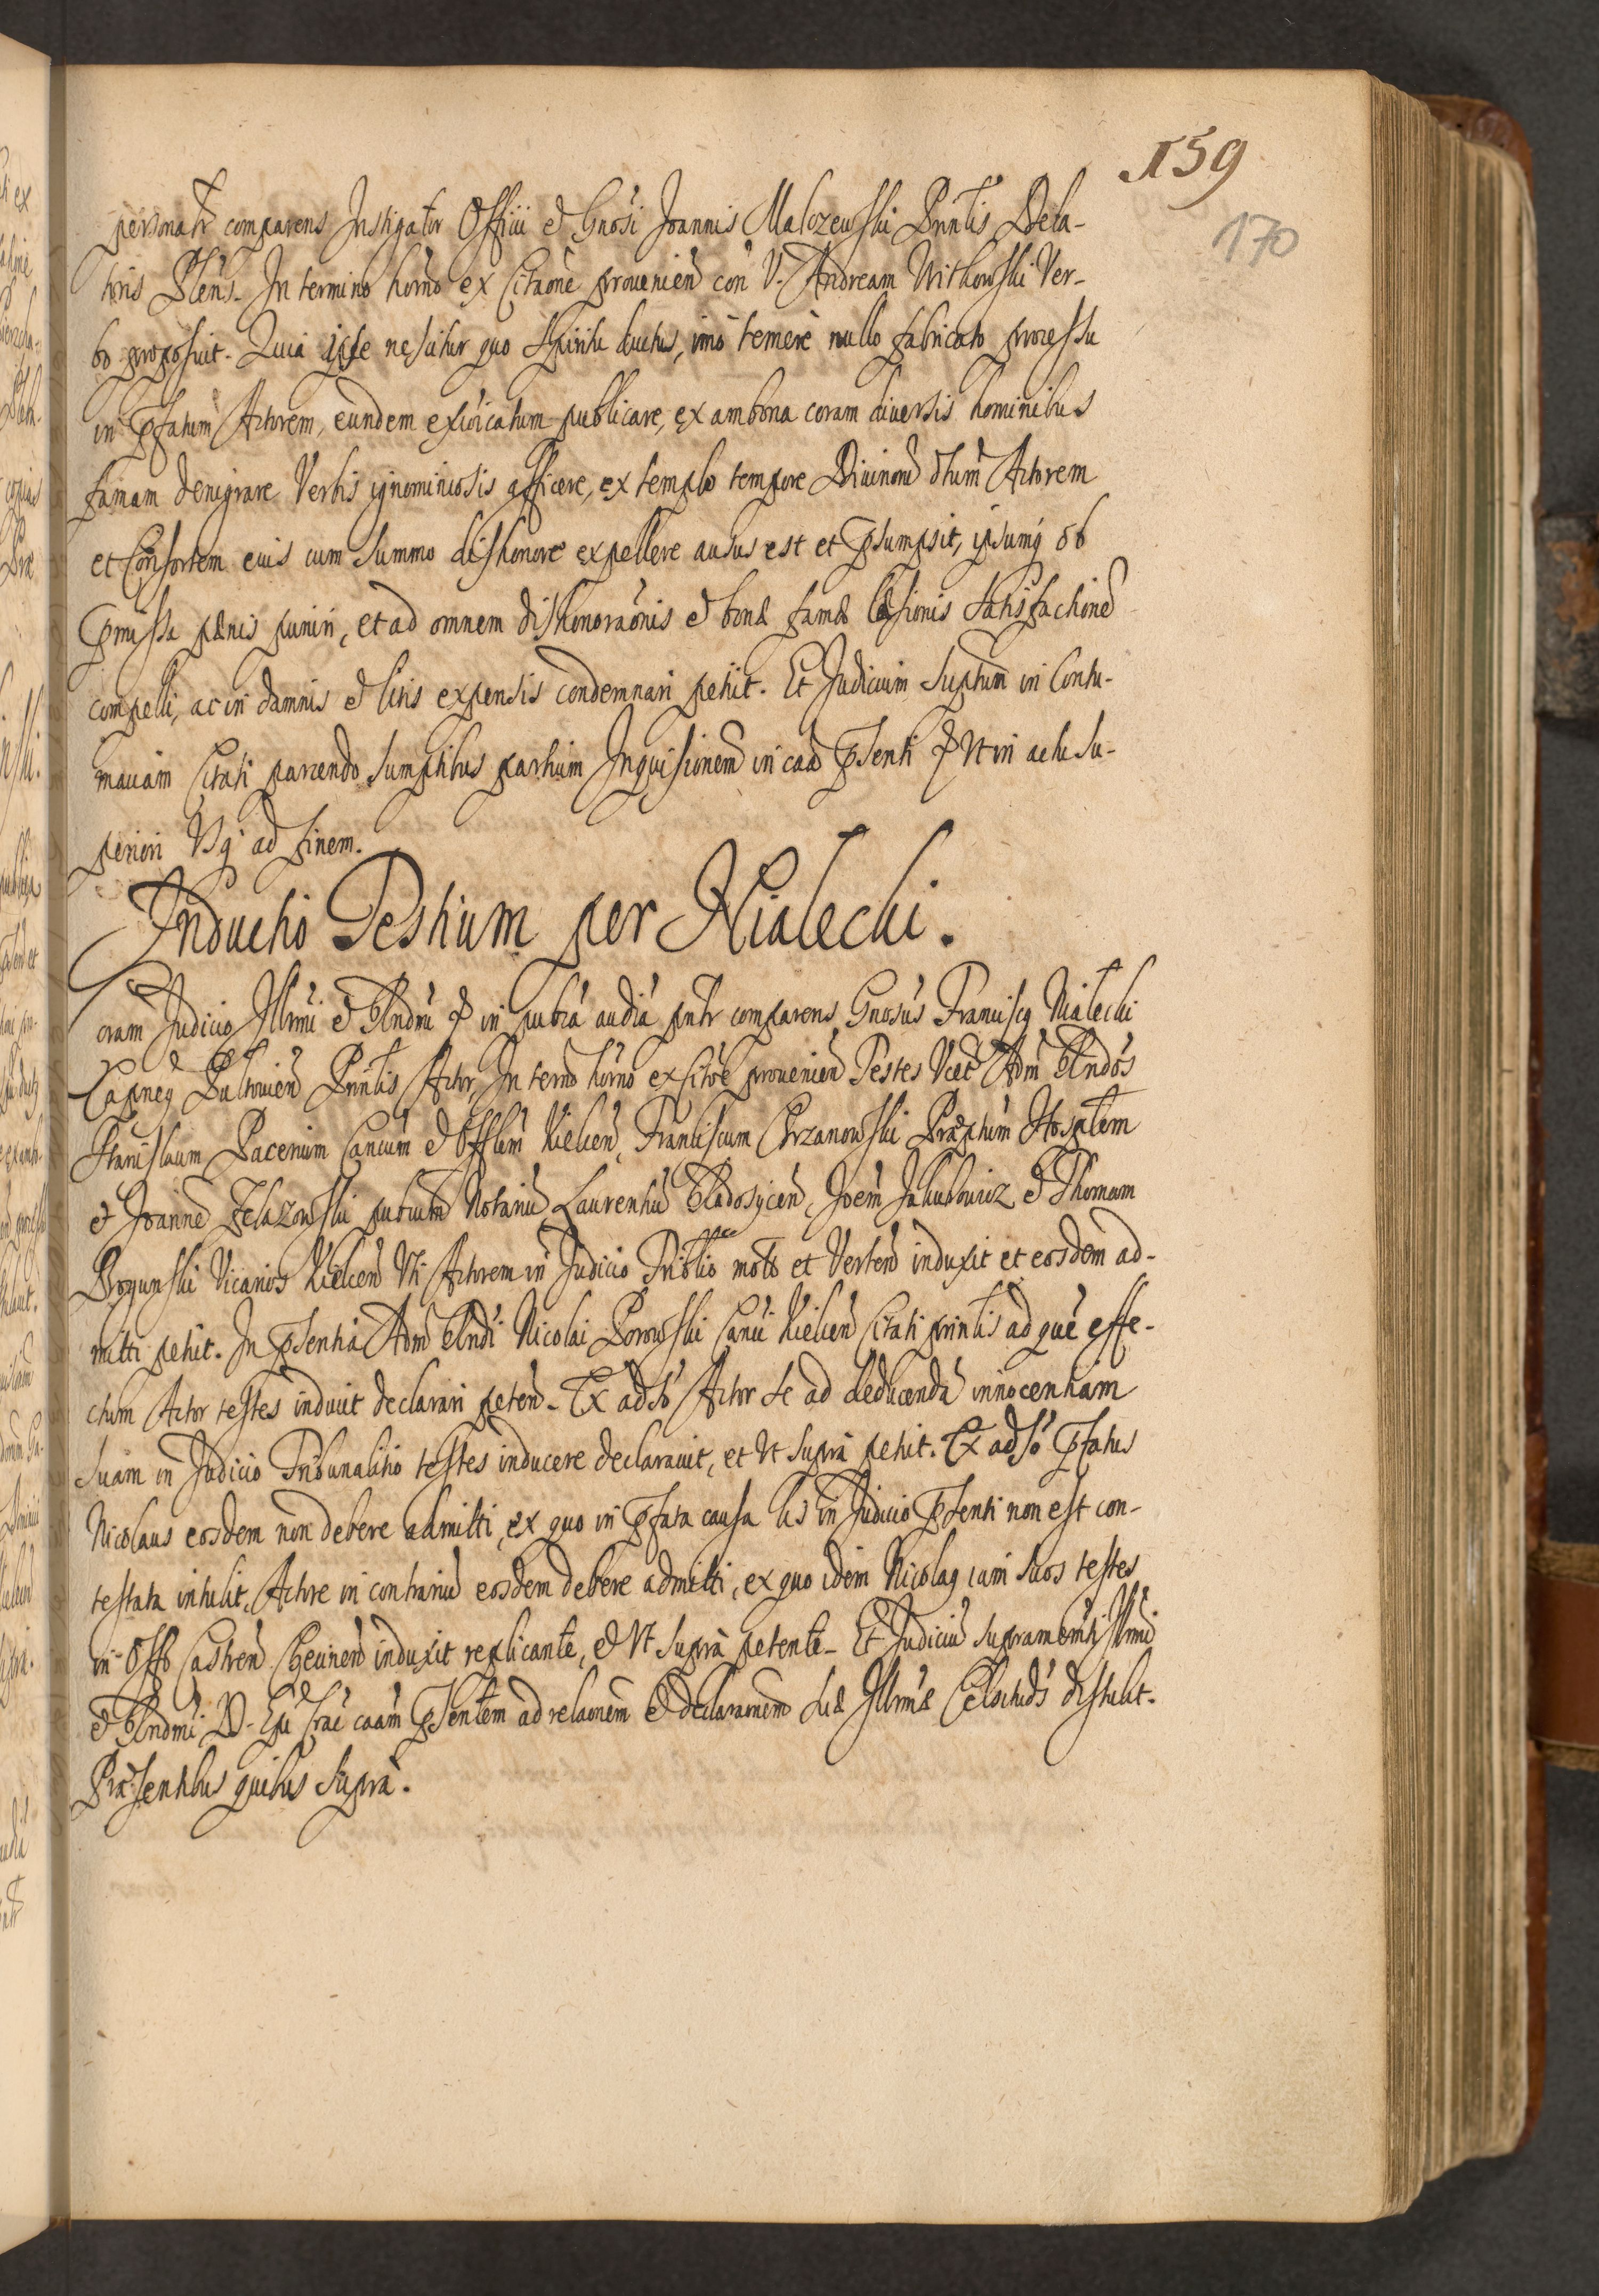 159
170
personatr comparens Instigator Officii et Gnosi Joannis Malozewski Prntis Dela-
toris Plens. In termino horno ex Citaone prouenien con V. Andream Witkowski Ver-
bo proposuit. Quia ipse nescitur quo Spiritu ductus, imo temere nullo fabricato processu
in Pfatum Actorem, eundem exicicatum publicare, ex ambona coram diversis hominibus
famam denigrare Verbis ignominiosis afficere, ex templo tempore Diuinorū dtum Actorem
et Consortem eius cum summo dishonore expellere ausus est et Psumpsit, ipsumq ob
Pmissa pænis puniri, et ad omnem dishonoraonis et bonæ famæ læsionis satisfactionē
compelli, ac in damnis et litis expensis condemnari petiit. Et Judicium Suptum in Contu-
maciam Citati parcendo sumptibus partium Inquisionem in caā Psenti & Vt in actu Su-
periori Vsq ad finem.
Inductio Testium per Nialecki.
Coram Judicio Illrmi et Rndmi & in publca audia pntr comparens Gnosus Franciscq Nialecki
Capneq Prntis Actor, In termo horno ex citoe prouenien Testes Vcet Adm Rndos
Stanislaum Pacenium Cancum et Offlem Kielcen, Franciscum Chrzanowski Præptum Hosptem
et Joannē Zelazowski pubcum Notariū Laurentiū Radosycen, Joem Jakubowicz et Thomam
Bogunski Vicarios Kielcen Vti Actorem in Judicio Tribtio moto et Verten induxit et eosdem ad-
mitti petiit. In Psentia Adm Rndi Nicolai Borowski Canci Kielcen Citati prntis ad quē effe-
ctum Actor testes induxit declarari peten. Ex adso Actor se ad deducendā innocentiam
suam in Judicio Tribunalitio testes inducere declarauit, et Vt supra petiit. Ex adso Pfatus
Nicolaus eosdem non debere admitti, ex quo in Pfata causa lis in Judicio Psenti non est con-
testata intulit, Actore in contrariū eosdem debere admitti, ex quo idem Nicolaq iam suos testes
in Offo Castren Checinen induxit replicante, et Vt supra petente. Et Judiciū supramemti Illrmi
et Rndmi D. Epi Crac caam Psentem ad relaonem et declaraonem suæ Illrmæ Celsitudis distulit.
Præsentibus quibus supra.